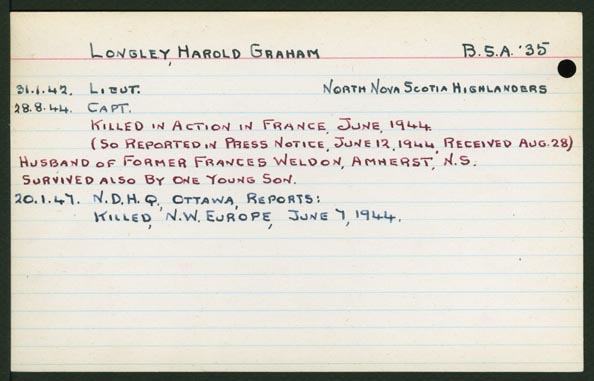 LONGLEY, HAROLD GRAHAM B.S.A. '35
31.1.42. LIEUT. NORTH NOVA SCOTIA HIGHLANDERS
28.8.44. CAPT.
KILLED IN ACTION IN FRANCE, JUNE, 1944.
(SO REPORTED IN PRESS NOTICE, JUNE 12, 1944, RECEIVED AUG. 28)
HUSBAND OF FORMER FRANCES WELDON, AMHERST, N.S.
SURVIVED ALSO BY ONE YOUNG SON.
20.1.47. N.D.H.Q., OTTAWA, REPORTS:
KILLED, N.W. EUROPE, JUNE 7, 1944.